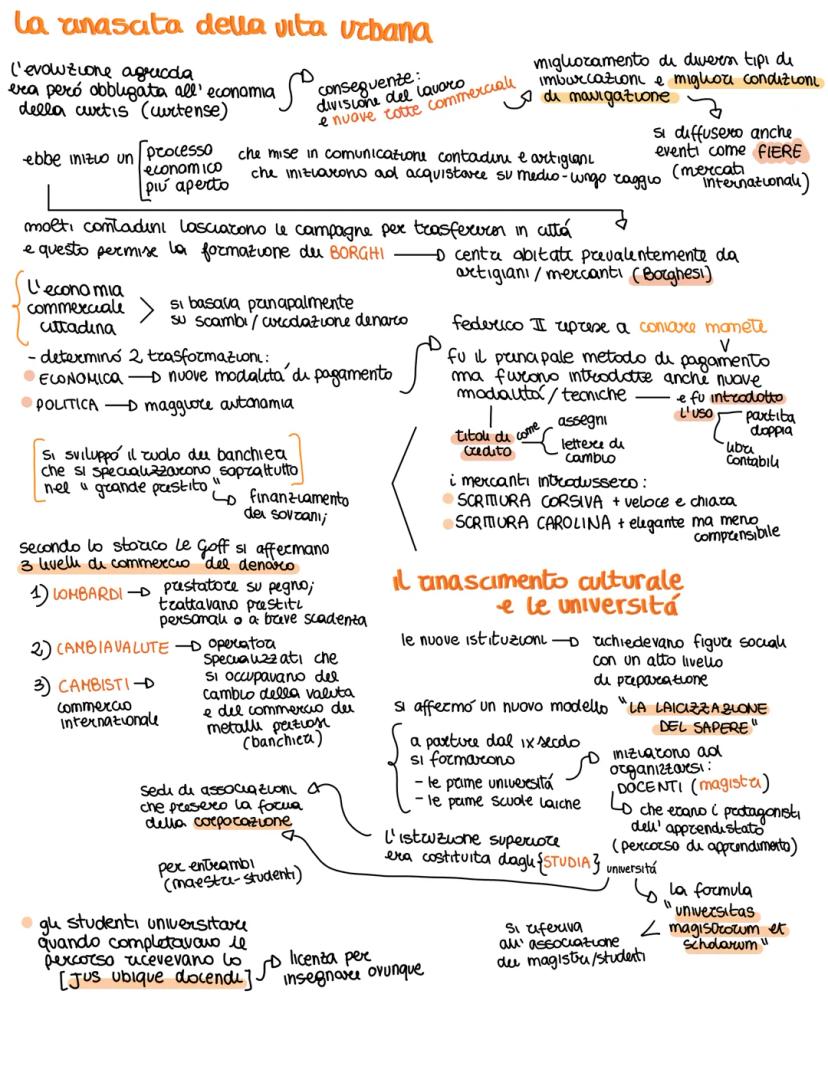 la rinascita della vita urbana
l'evoluzione agricola
era però obbligata all'economia
della curtis (curtense)
conseguenze:
divisione del lavoro
e nuove rotte commerciali
miglioramento di diversi tipi di
imbarcazioni e migliori condizioni
di navigazione
si diffusero anche
eventi come FIERE
(mercati
internazionali)
ebbe inizio un
processo
economico
più aperto
che mise in comunicazione contadini e artigiani
che iniziarono ad acquistare su medio-lungo raggio
molti contadini lasciarono le campagne per trasferirsi in città
e questo permise la formazione dei BORGHI
centri abitati prevalentemente da
artigiani/mercanti (Borghesi)
L'economia
commerciale
cittadina
si basava principalmente
su scambi/circolazione denaro
- determinò 2 trasformazioni:
ECONOMICA
nuove modalità di pagamento
POLITICA
maggiore autonomia
federico II riprese a coniare monete
fu il principale metodo di pagamento
ma furono introdotte anche nuove
modalità/tecniche
e fu introdotto
l'uso
partita
doppia
libri
contabili
titoli di
credito
come
assegni
lettere di
cambio
si sviluppò il ruolo dei banchieri
che si specializzarono soprattutto
nel "grande prestito"
finanziamento
dei sovrani;
i mercanti introdussero:
SCRITTURA CORSIVA + veloce e chiara
SCRITTURA CAROLINA + elegante ma meno
comprensibile
secondo lo storico Le Goff si affermano
3 livelli di commercio del denaro
1) LOMBARDI
prestatore su pegno;
trattavano prestiti
personali o a breve scadenza
2) CAMBIAVALUTE
operatori
specializzati che
si occupavano del
cambio della valuta
e del commercio dei
metalli preziosi
(banchieri)
3) CAMBISTI
commercio
internazionale
il rinascimento culturale
e le università
le nuove istituzioni
richiedevano figure sociali
con un alto livello
di preparazione
si affermò un nuovo modello "LA LAICIZZAZIONE
DEL SAPERE"
a partire dal IX secolo
si formarono
- le prime università
- le prime scuole laiche
iniziarono ad
organizzarsi:
DOCENTI (magistri)
che erano i protagonisti
dell'apprendistato
(percorso di apprendimento)
L'istruzione superiore
era costituita dagli {STUDIA}
università
sedi di associazioni
che presero la forma
della corporazione
per entrambi
(maestri-studenti)
la formula
"universitas
magistrorum et
scholarum"
si riferiva
all'associazione
dei magistri/studenti
gli studenti universitari
quando completavano il
percorso ricevevano lo
[JUS ubique docendi]
licenza per
insegnare ovunque